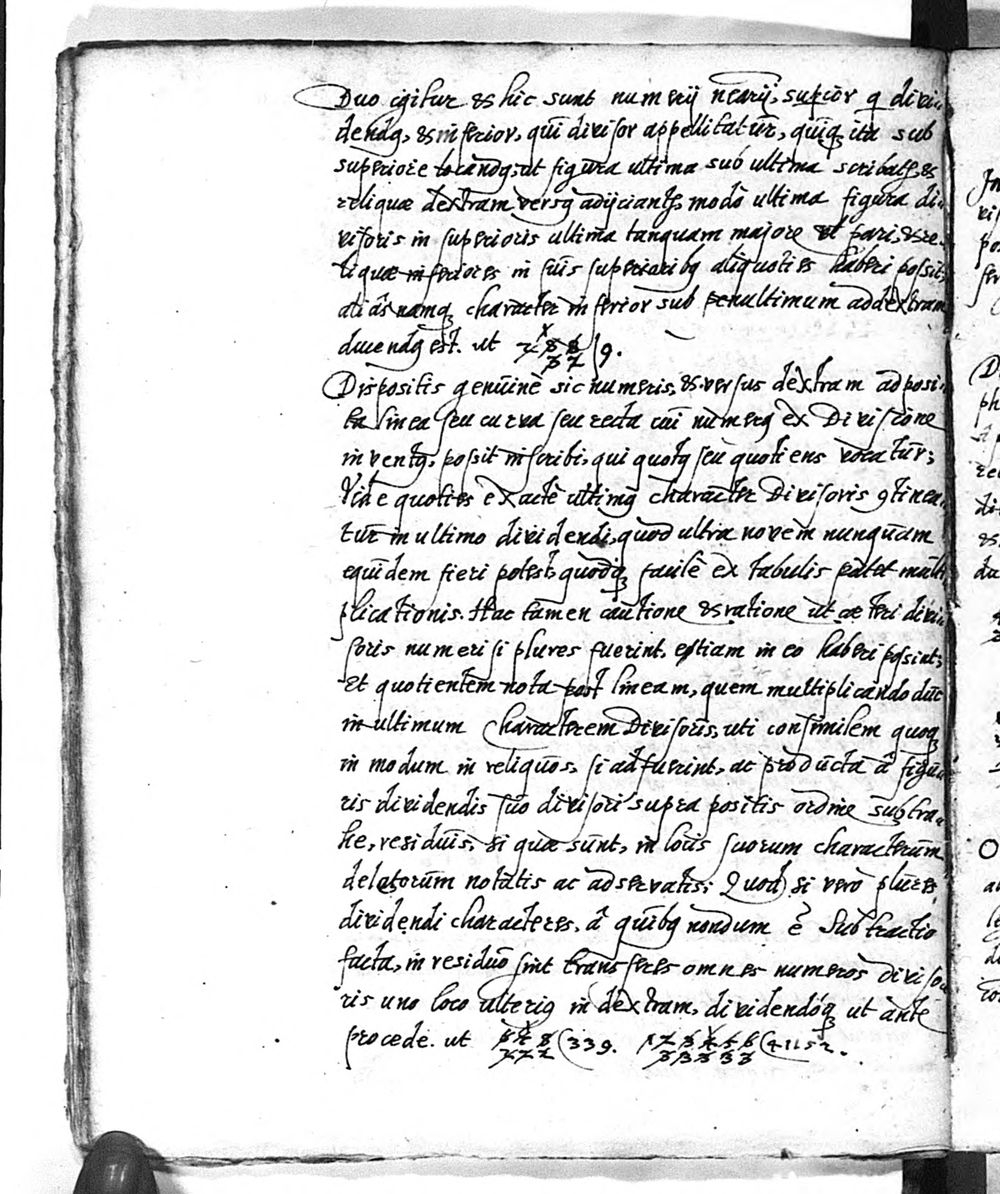 Duo igitur & hic sunt numerij necarij, supior q divi-
dendq, & inferior, qui divisor appellitatur, quiq ita sub
superiore locandq, ut figura ultima sub ultima scribatr, &
reliquæ dextram versq adijciantr, modo ultima figura di-
visoris in superioris ultima tanquam majore vt pari, & re-
liquæ inferiores in suis superioribq aliquoties haberi possit,
aliâs namq character inferior sub penultimum ad dextram
ducendq est. ut 9.
Dispositis genuinè sic numeris, & versus dextram adposi-
ta linea seu curva seu recta cui numerq ex Divisione
inventq, possit inscribi, qui quotq seu quotiens vocatur;
Vide quoties exactè ultimq character Divisoris 9tinea-
tur in ultimo dividendi, quod ultra novem nunquam
equidem fieri potest, quodq facilè ex tabulis patet multi
plicationis. Hac tamen cautione & ratione ut cæteri divi-
soris numeri si plures fuerint, etiam in eo haberi possint;
Et quotientem nota post lineam, quem multiplicando duc
in ultimum Characterem Divisoris, uti consimilem quoq
in modum in reliquos, si adfuerint, ac producta â figu-
ris dividendis suo divisori supra positis ordine subtra-
he, residuis, si quæ sunt, in locis suorum characterum
deletorum notatis ac adservatis; Quod si verò plures
dividendi characteres, â quibq nondum ẽ Subtractio
facta, in residuo sint transferes omnes numeros diviso-
ris uno loco ulteriq in dextram, dividendóq ut ante
procede. ut (339. (41152.